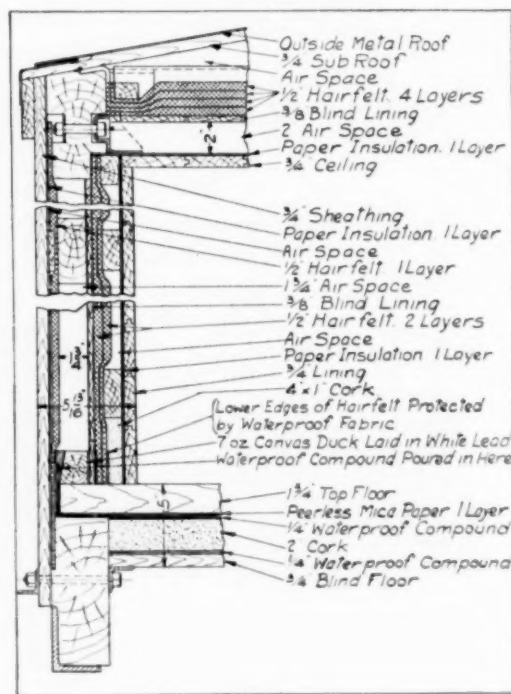 Outside Metal Roof
3/4 Sub Roof
Air Space
1/2" Hairfelt. 4 Layers
3/8 Blind Lining
2 Air Space
Paper Insulation. 1 Layer
3/4" Ceiling
2"
3/4" Sheathing
Paper Insulation. 1 Layer
Air Space
1/2" Hairfelt. 1 Layer
1 3/4" Air Space
3/8" Blind Lining
1/2" Hairfelt. 2 Layers
Air Space
Paper Insulation 1 Layer
3/4" Lining
4" x 1" Cork
1 3/4"
5 13/16"
Lower Edges of Hairfelt Protected
by Waterproof Fabric
7 oz Canvas Duck Laid in White Lead
Waterproof Compound Poured in Here
5"
1 3/4" Top Floor
Peerless Mica Paper 1 Layer
1/4" Waterproof Compound
2" Cork
1/4" Waterproof Compound
3/4" Blind Floor